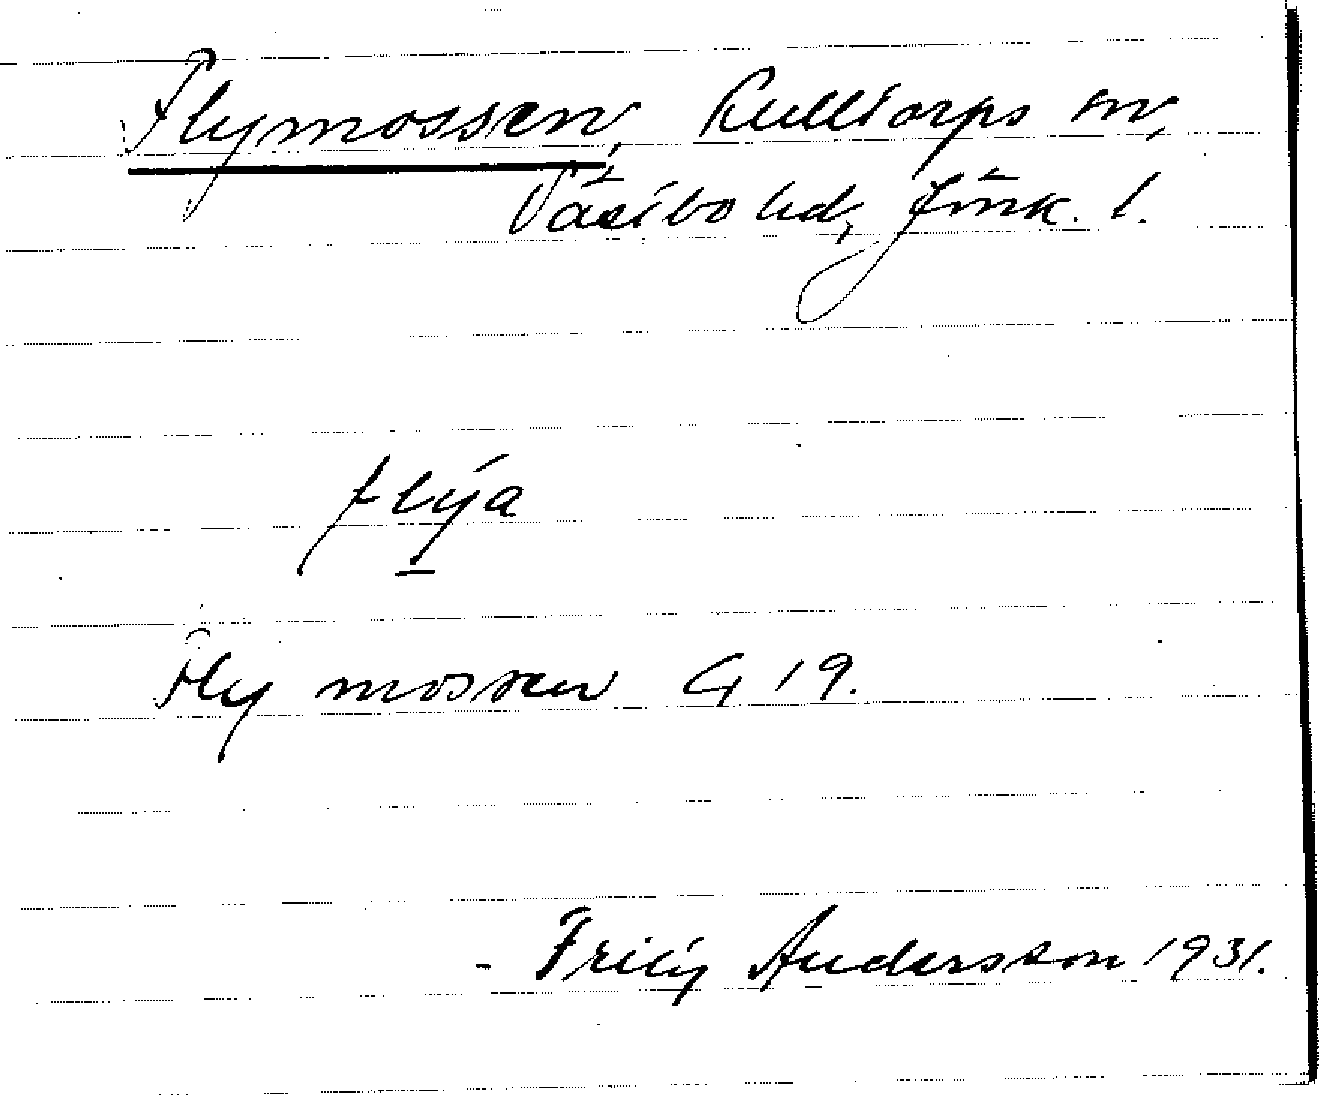 Flymossen, Kulltorps sn,
Västbo hd, Jönk. l.
flýa
Fly mossen G 19.
- Frilig Andersson 1931.